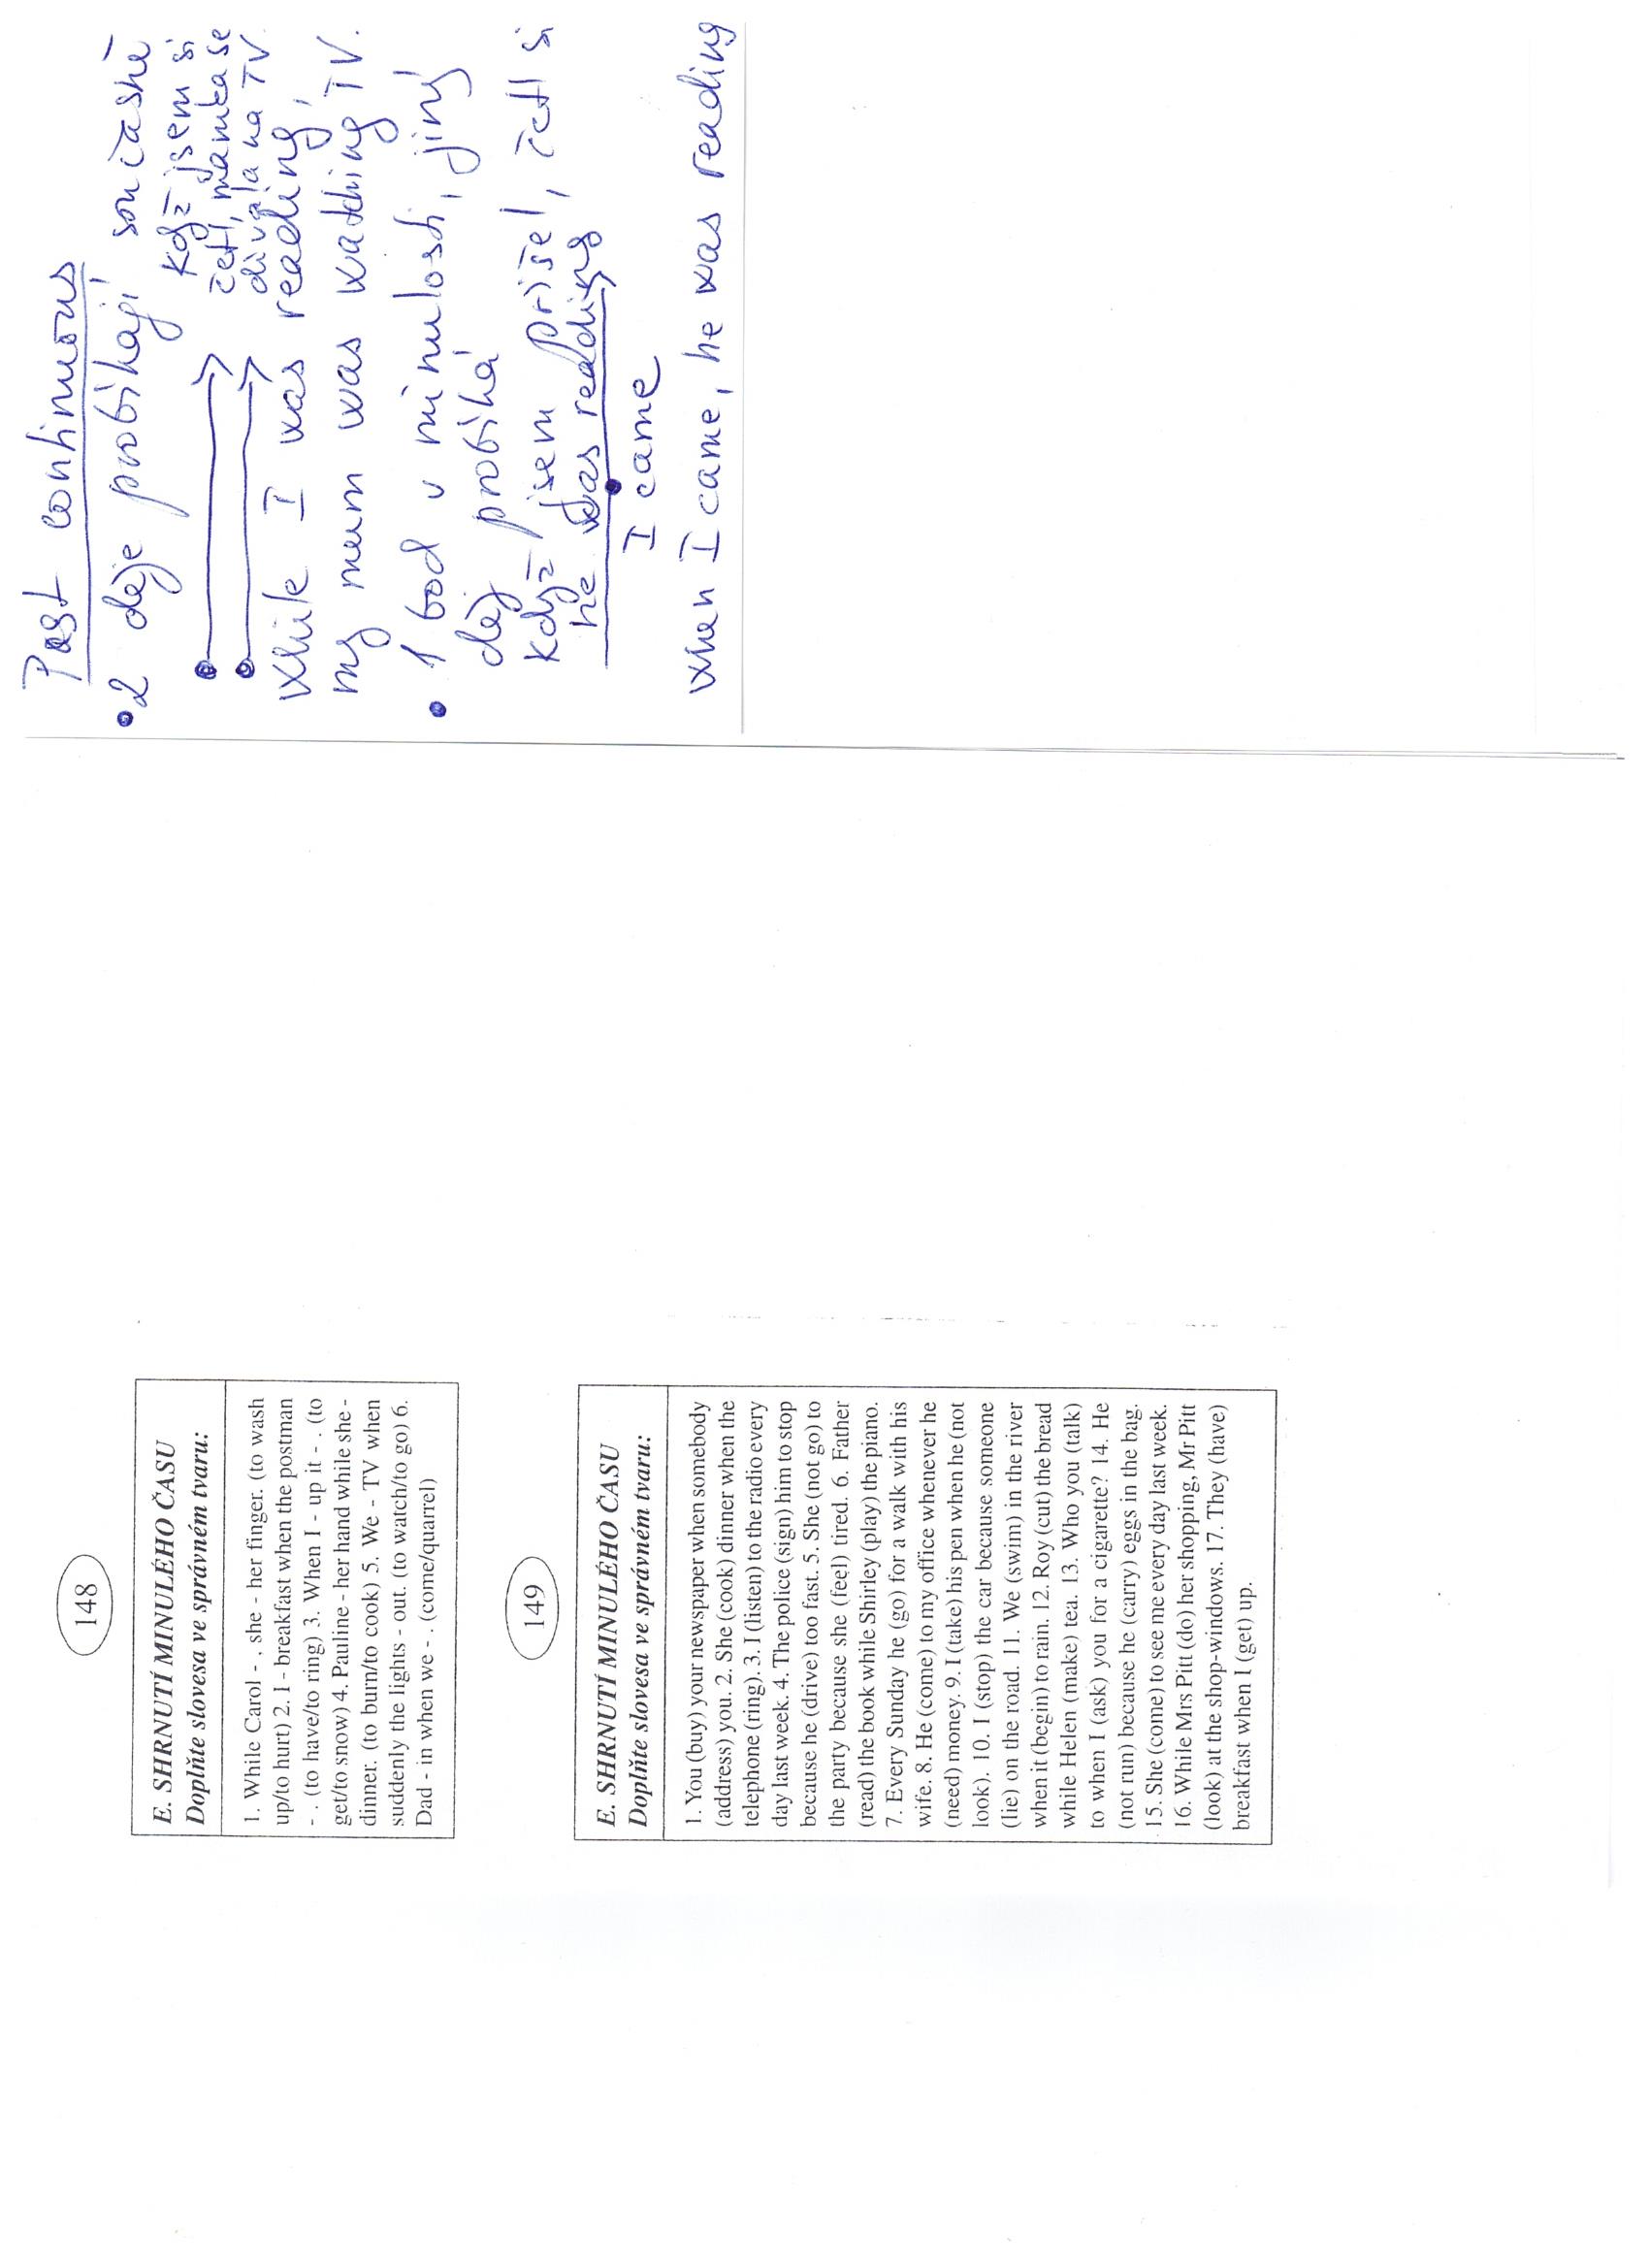 148
E. SHRNUTÍ MINULÉHO ČASU
Doplňte slovesa ve správném tvaru:
1. While Carol - , she - her finger. (to wash
up/to hurt) 2. I - breakfast when the postman
- . (to have/to ring) 3. When I - up it - . (to
get/to snow) 4. Pauline - her hand while she -
dinner. (to burn/to cook) 5. We - TV when
suddenly the lights - out. (to watch/to go) 6.
Dad - in when we - . (come/quarrel)
149
E. SHRNUTÍ MINULÉHO ČASU
Doplňte slovesa ve správném tvaru:
1. You (buy) your newspaper when somebody
(address) you. 2. She (cook) dinner when the
telephone (ring). 3. I (listen) to the radio every
day last week. 4. The police (sign) him to stop
because he (drive) too fast. 5. She (not go) to
the party because she (feel) tired. 6. Father
(read) the book while Shirley (play) the piano.
7. Every Sunday he (go) for a walk with his
wife. 8. He (come) to my office whenever he
(need) money. 9. I (take) his pen when he (not
look). 10. I (stop) the car because someone
(lie) on the road. 11. We (swim) in the river
when it (begin) to rain. 12. Roy (cut) the bread
while Helen (make) tea. 13. Who you (talk)
to when I (ask) you for a cigarette? 14. He
(not run) because he (carry) eggs in the bag.
15. She (come) to see me every day last week.
16. While Mrs Pitt (do) her shopping, Mr Pitt
(look) at the shop-windows. 17. They (have)
breakfast when I (get) up.
Past continuous
• 2 děje probíhají současně
Když jsem si
četl, mamka se
dívala na TV
While I was reading,
my mum was watching TV.
• 1 bod v minulosti, jiný
děj probíhá
Když jsem přišel, četl si
he was reading
I came
When I came, he was reading